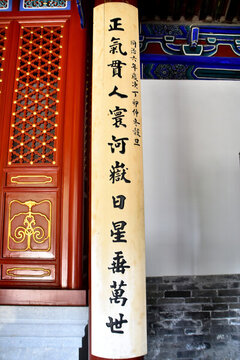 同治六年歲次丁卯仲冬穀旦
正氣貫人寰河嶽日星垂萬世